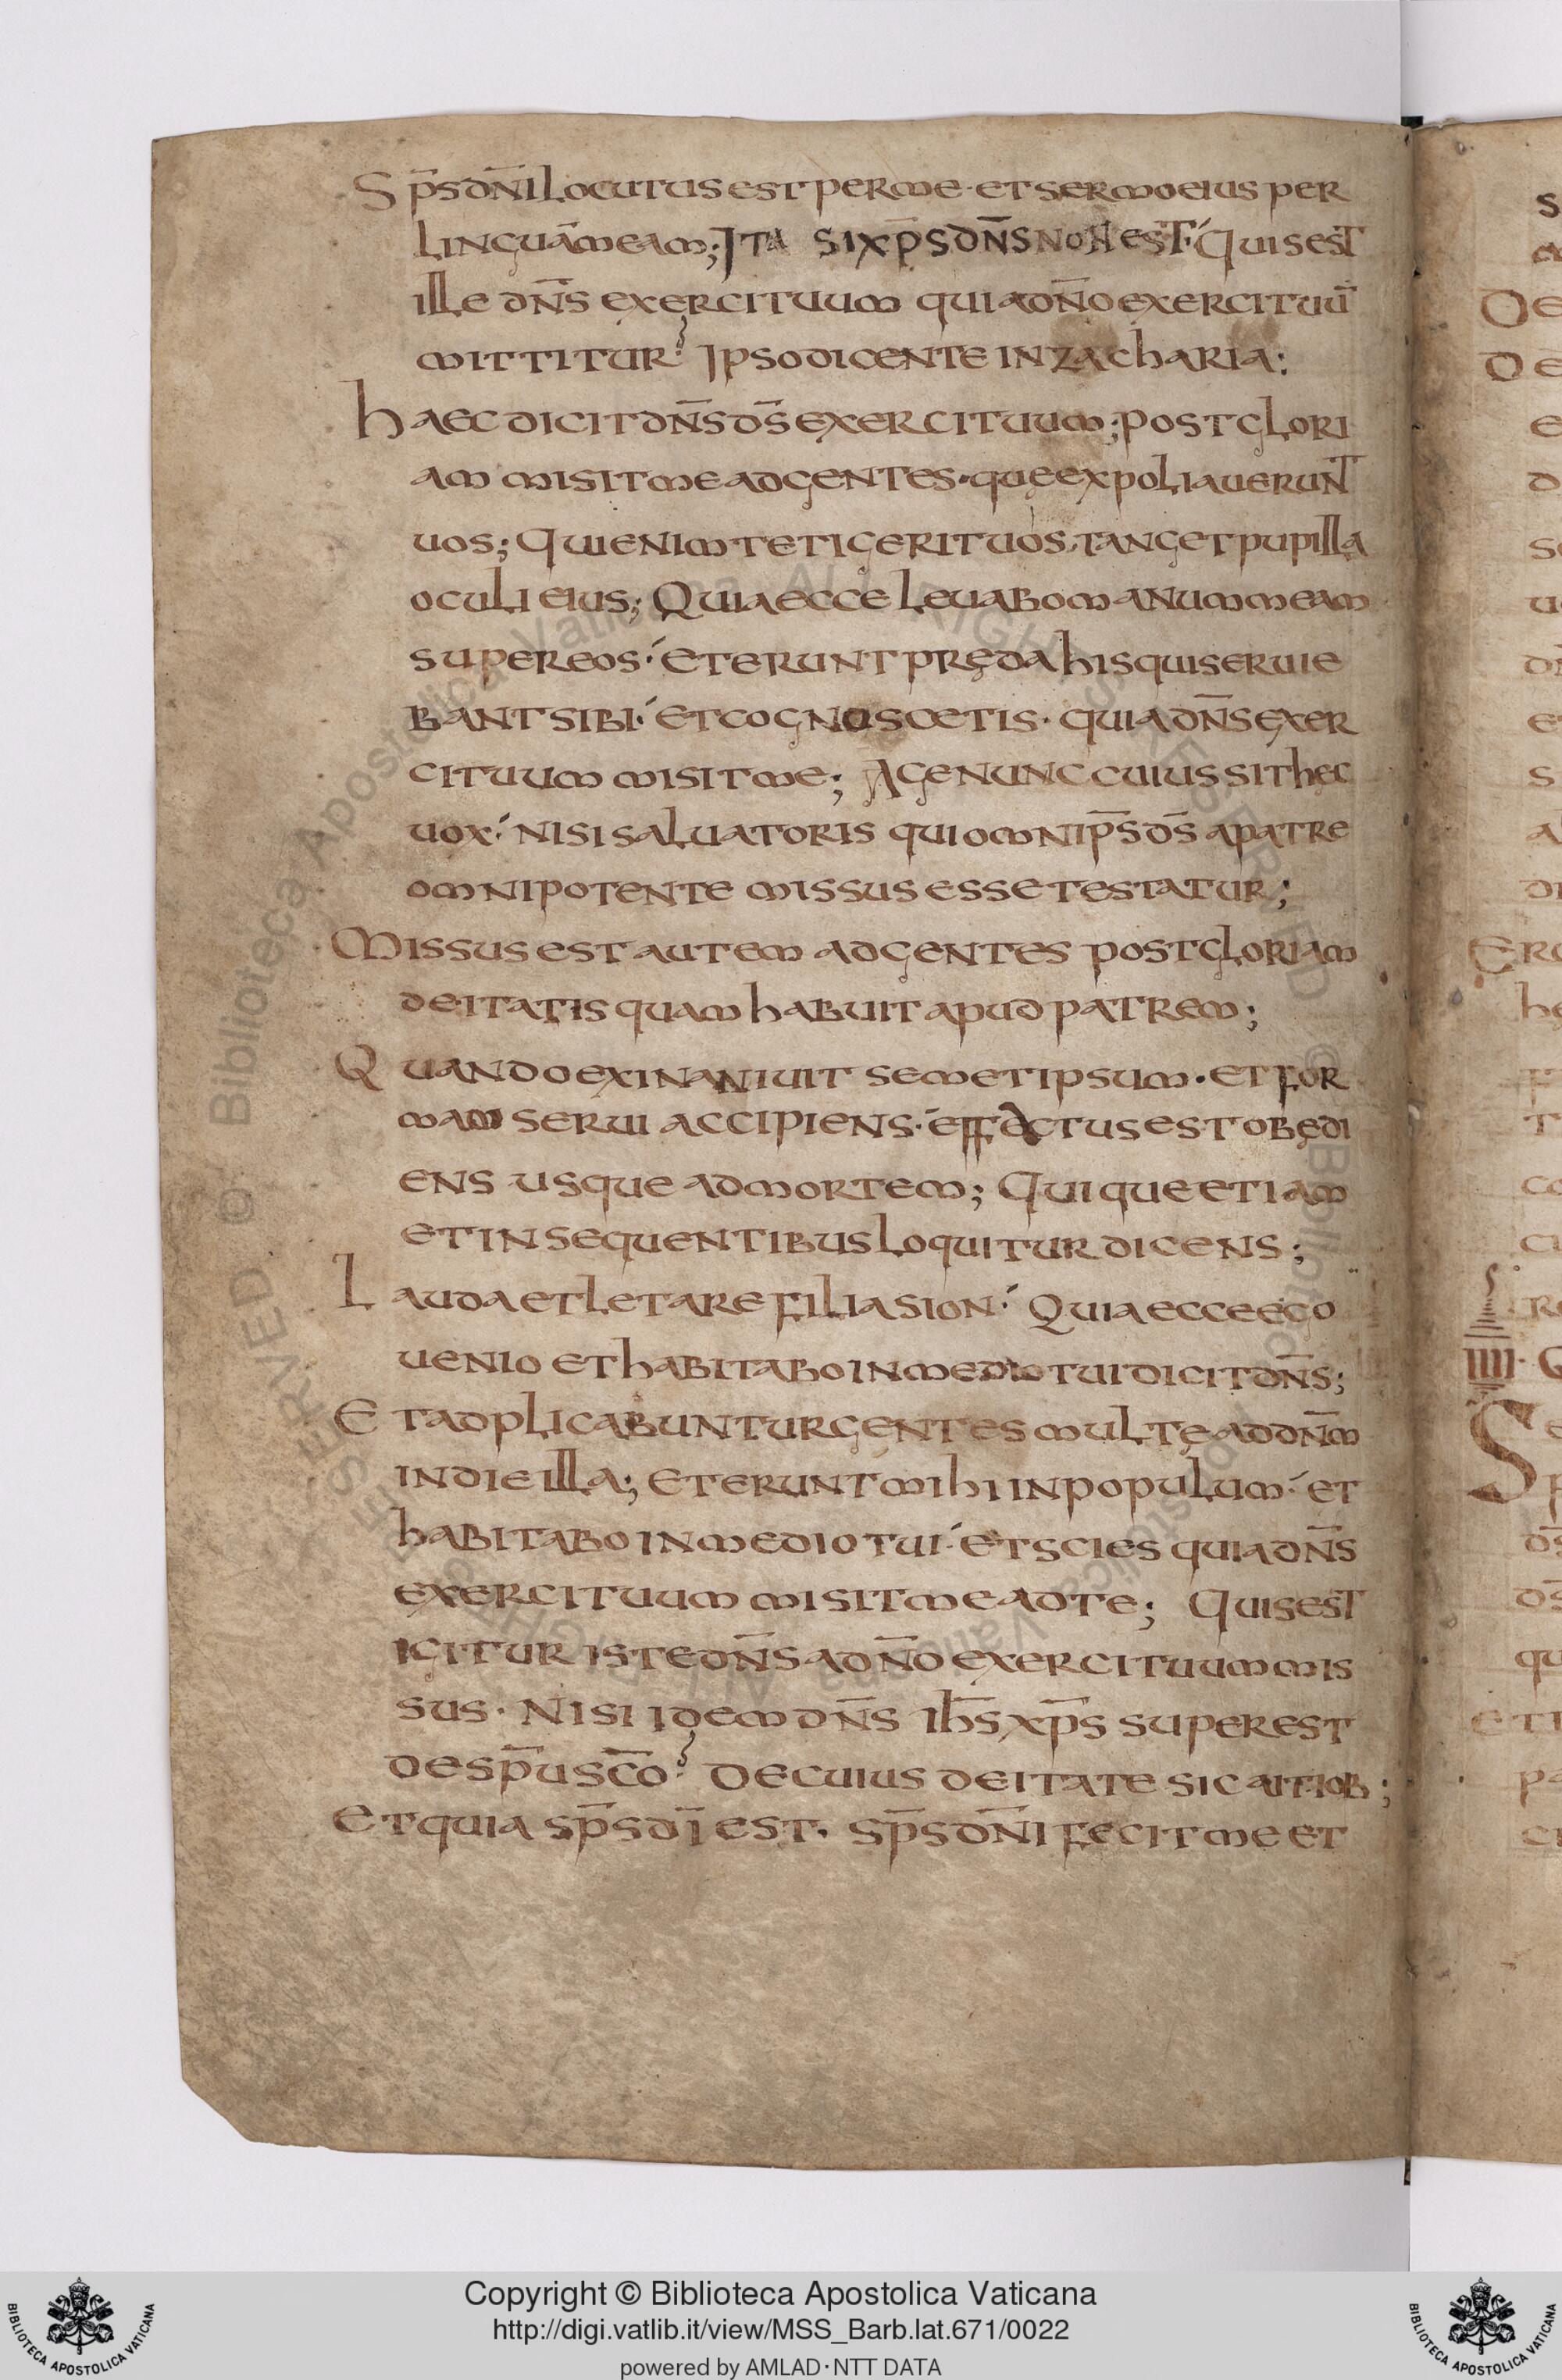 Sp̄s dn̄i locutus est per me · et sermo eius per
linguā meam; Ita si xp̄s dn̄s non est·́ Quis est
ille dn̄s exercituum qui a dn̄o exercituū
mittitur? Ipso dicente in zacharia:
haec dicit dn̄s ds̄ exercituum; post glori
am misit me ad gentes · que expoliauerunt
uos; Qui enim tetigerit uos, tanget pupilla
oculi eius; Quia ecce leuabo manum meam
super eos·́ Et erunt pręda his qui seruie
bant sibi·́ Et cognoscetis · quia dn̄s exer
cituum misit me; Age nunc cuius sit hęc
uox·́ nisi saluatoris qui omnip̄s ds̄ a patre
omnipotente missus esse testatur;
Missus est autem ad gentes post gloriam
deitatis quam habuit apud patrem;
Quando exinaniuit semetipsum · et for
mam serui accipiens·́ effectus est obędi
ens usque ad mortem; Qui que etiam
et in sequentibus loquitur dicens;
Lauda et letare filia sion·́ Quia ecce ego
uenio et habitabo in medio tui dicit dn̄s;
Et adplicabuntur gentes multę ad dn̄m
in die illa; Et erunt mihi in populum·́ et
habitabo in medio tui·́ Et scies quia dn̄s
exercituum misit me ad te; Quis est
igitur iste dn̄s a dn̄o exercituum mis
sus · Nisi idem dn̄s ih̄s xp̄s superest
de sp̄u sc̄o? De cuius deitate sic ait iob;
Et quia sp̄s dī est · Sp̄s dn̄i fecit me et
Copyright © Biblioteca Apostolica Vaticana
http://digi.vatlib.it/view/MSS_Barb.lat.671/0022
powered by AMLAD·NTT DATA
BIBLIOTECA APOSTOLICA VATICANA
BIBLIOTECA APOSTOLICA VATICANA